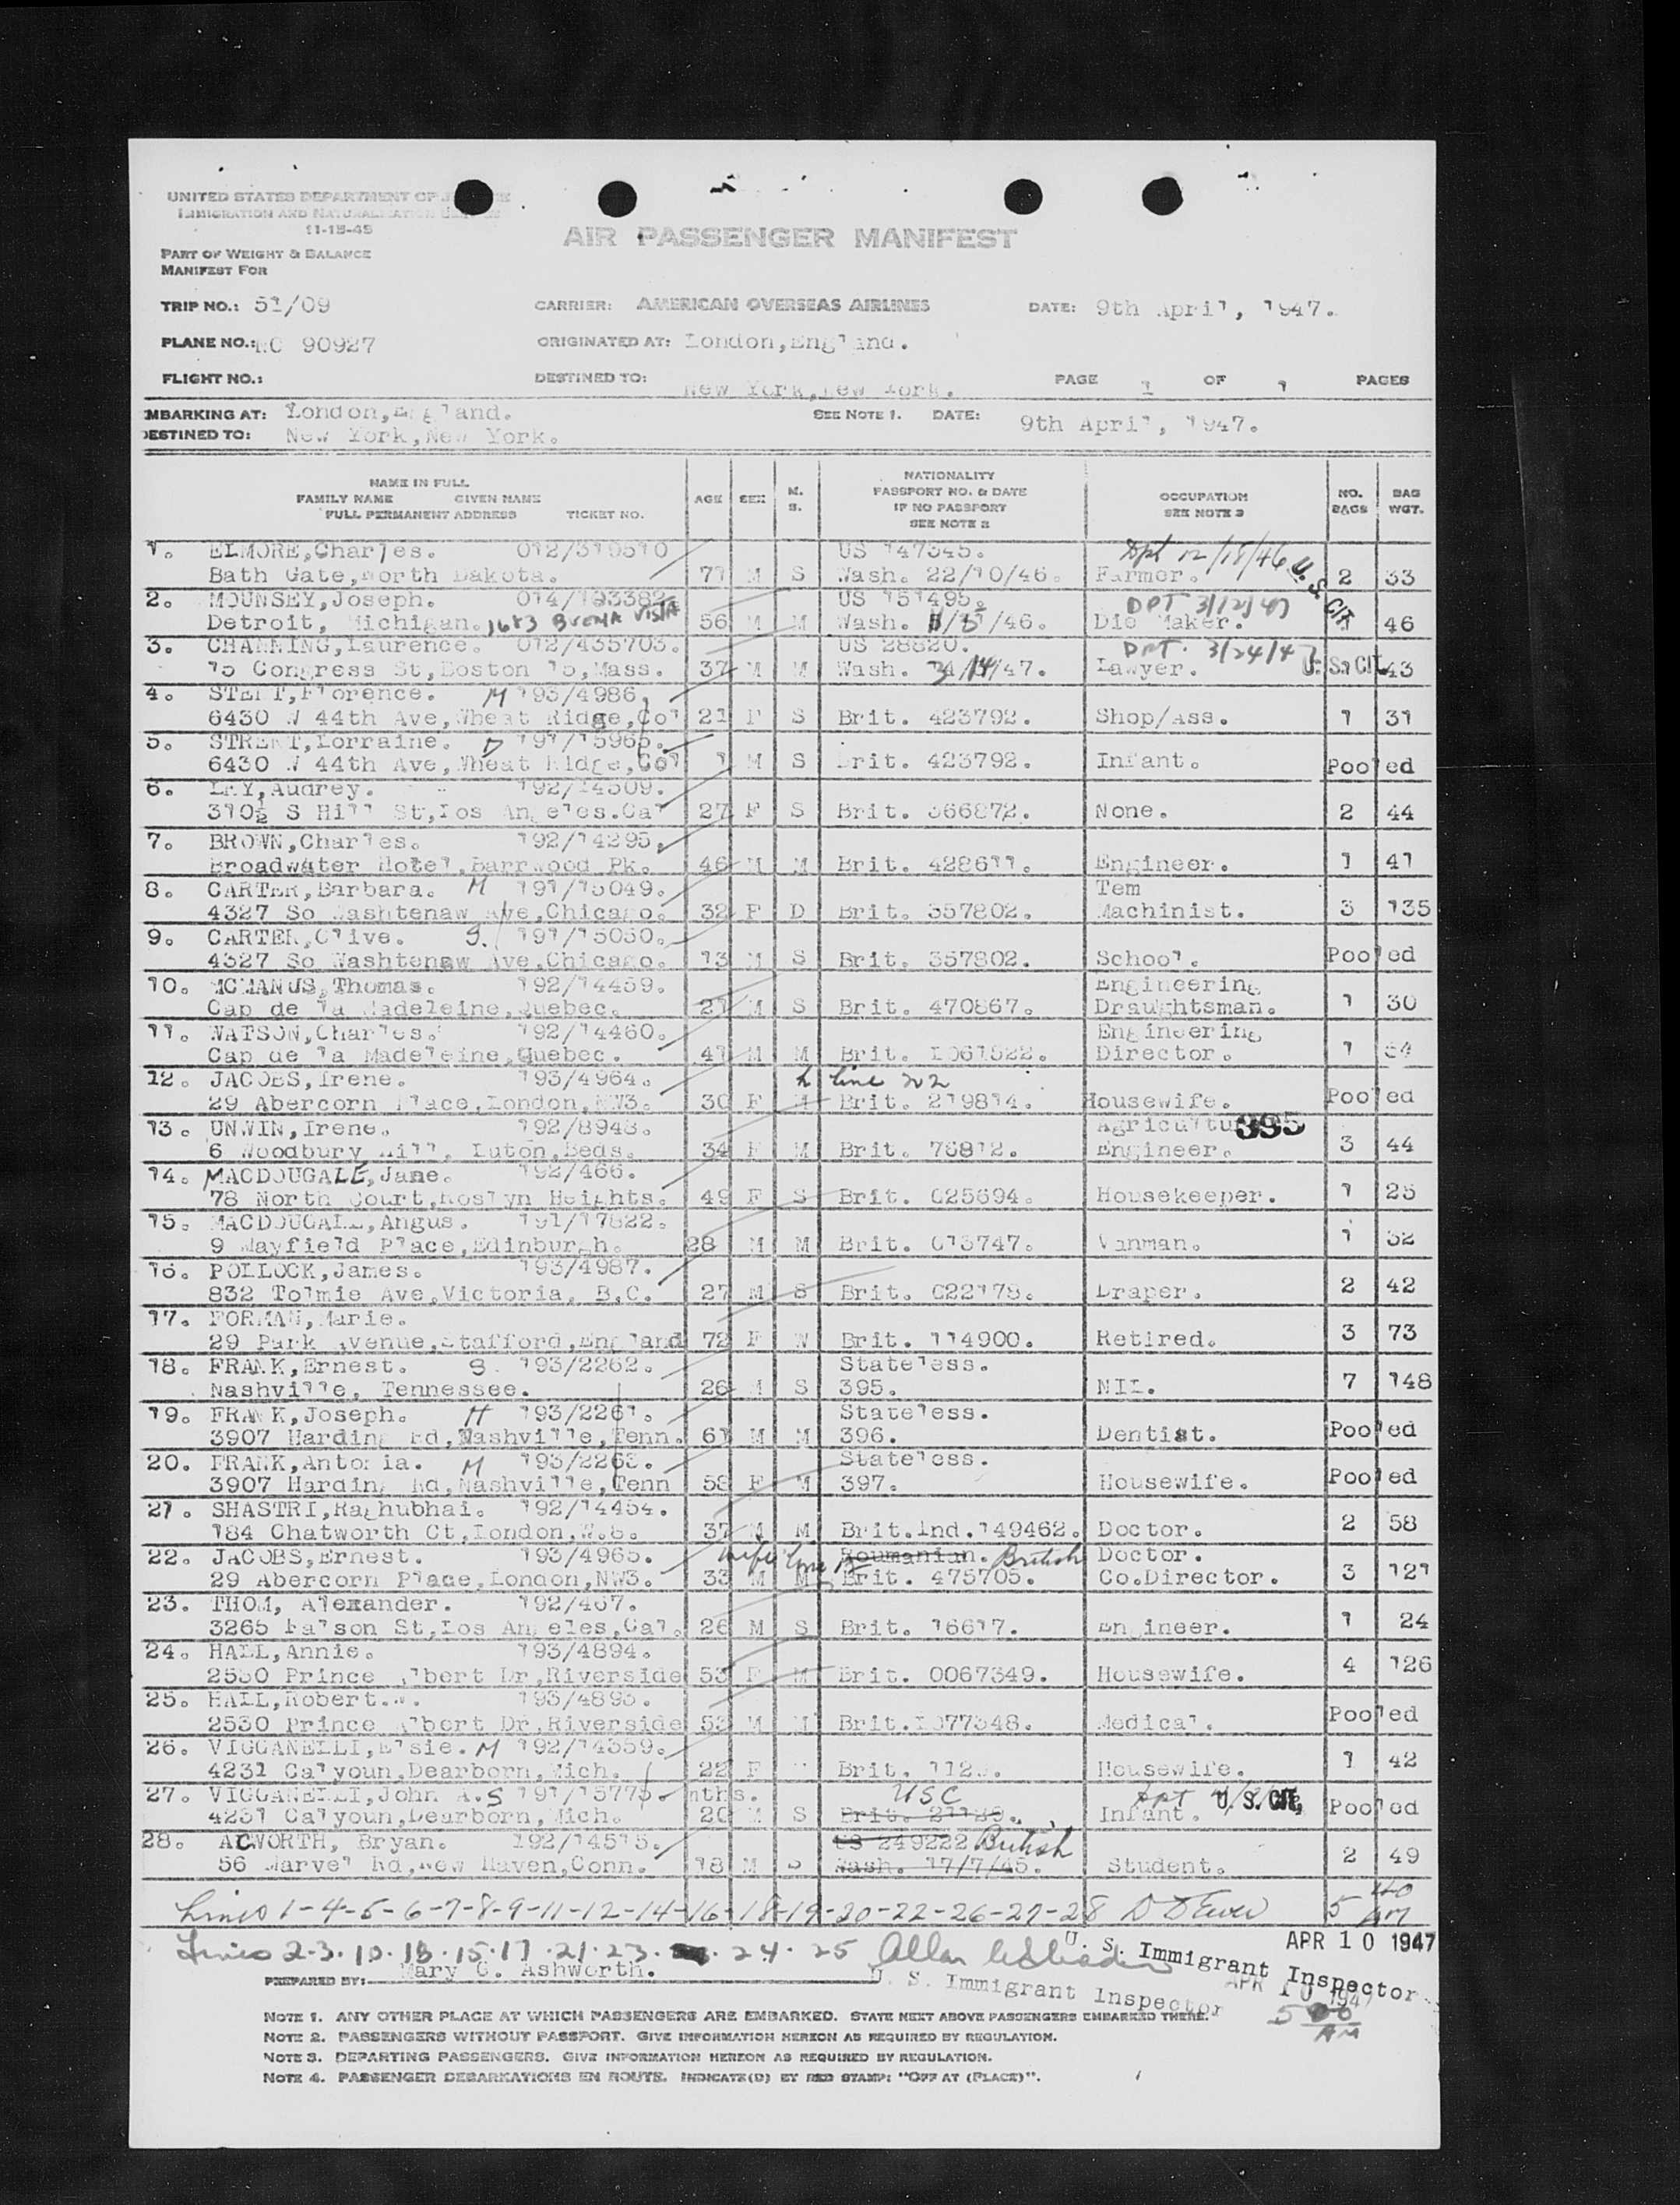 UNITED STATES DEPARTMENT OF
IMMIGRATION AND
11-15-45
AIR PASSENGER MANIFEST
PART OF WEIGHT & BALANCE
MANIFEST FOR
TRIP NO.: 51/09 CARRIER: AMERICAN OVERSEAS AIRLINES DATE: 9th April, 1947.
PLANE NO.: NC 90927 ORIGINATED AT: London,England.
FLIGHT NO.: DESTINED TO: New York,New York. PAGE 1 OF 1 PAGES
MBARKING AT: London,England. SEE NOTE 1. DATE: 9th April, 1947.
DESTINED TO: New York,New York.
NAME IN FULL
FAMILY NAME GIVEN NAME
FULL PERMANENT ADDRESS TICKET NO.
AGE SEX M. S.
NATIONALITY
PASSPORT NO. & DATE
IF NO PASSPORT
SEE NOTE 2
OCCUPATION
SEE NOTE 3
NO. BAGS
BAG WGT.
1. ELMORE,Charles. 012/310510 US 147545. Dpt 12/18/46 U.S. CIT
Bath Gate,North Dakota. 77 M S Wash. 22/10/46. Farmer. 2 33
2. MOUNSEY,Joseph. 014/193382 US 151495. DPT 3/12/47
Detroit, Michigan. 1683 BUENA VISTA 56 M M Wash. /46. Die Maker. 1 46
3. CHANNING,Laurence. 012/435703. US 28820. Dpt. 3/24/47
15 Congress St,Boston 15,Mass. 37 M M Wash. /47. Lawyer. U.S. CIT 43
4. STREIT,Florence. M 193/4986.
6430 W 44th Ave,Wheat Ridge,Col 21 F S Brit. 423792. Shop/Ass. 1 31
5. STREIT,Lorraine. D 191/15965.
6430 W 44th Ave,Wheat Ridge,Col 1 M S Brit. 423792. Infant. Pooled
6. LEY,Audrey. 192/14509.
310½ S Hill St,Los Angeles.Cal 27 F S Brit. 366872. None. 2 44
7. BROWN,Charles. 192/14295.
Broadwater Hotel,Barrwood Pk. 46 M M Brit. 428611. Engineer. 1 41
8. CARTER,Barbara. M 191/15049. Tem
4327 So Washtenaw Ave,Chicago. 32 F D Brit. 357802. Machinist. 3 135
9. CARTER,Clive. S. 191/15050.
4327 So Washtenaw Ave,Chicago. 13 M S Brit. 357802. School. Pooled
10. MCMANUS,Thomas. 192/14459. Engineering
Cap de la Madeleine,Quebec. 27 M S Brit. 470867. Draughtsman. 1 30
11. WATSON,Charles. 192/14460. Engineering
Cap de la Madeleine,Quebec. 41 M M Brit. 1061522. Director. 1 54
12. JACOBS,Irene. 193/4964. h line 22
29 Abercorn Place,London,NW3. 30 F M Brit. 219814. Housewife. Pooled
13. UNWIN,Irene. 192/8943. Agricultu 395
6 Woodbury Hill, Luton,Beds. 34 F M Brit. 76812. Engineer. 3 44
14. MACDOUGALE,Jane. 192/466.
78 North Court,Roslyn Heights. 49 F S Brit. C25694. Housekeeper. 1 25
15. MACDOUGALL,Angus. 191/17822.
9 Mayfield Place,Edinburgh. 28 M M Brit. C13747. Vanman. 1 32
16. POLLOCK,James. 193/4987.
832 Tolmie Ave,Victoria, B.C. 27 M S Brit. C22178. Draper. 2 42
17. FORMAN,Marie.
29 Park Avenue,Stafford,England 72 F W Brit. 114900. Retired. 3 73
18. FRANK,Ernest. S 193/2262. Stateless.
Nashville, Tennessee. 26 M S 395. NIL. 7 148
19. FRANK,Joseph. H 193/2261. Stateless.
3907 Harding Rd,Nashville,Tenn. 61 M M 396. Dentist. Pooled
20. FRANK,Antonia. M 193/2263. Stateless.
3907 Harding Rd,Nashville,Tenn 58 F M 397. Housewife. Pooled
21. SHASTRI,Raghubhai. 192/14454.
184 Chatworth Ct,London,W.8. 37 M M Brit.Ind.149462. Doctor. 2 58
22. JACOBS,Ernest. 193/4965. wife line 12 Roumanian. British Doctor.
29 Abercorn Place,London,NW3. 33 M M Brit. 475705. Co.Director. 3 121
23. THOM, Alexander. 192/467.
3265 Larson St,Los Angeles,Cal. 26 M S Brit. 16617. Engineer. 1 24
24. HALL,Annie. 193/4894.
2530 Prince Albert Dr,Riverside 53 F M Brit. 0067349. Housewife. 4 126
25. HALL,Robert.W. 193/4895.
2530 Prince Albert Dr,Riverside 53 M M Brit. 077348. Medical. Pooled
26. VIGGANELLI,Elsie. M 192/14359.
4231 Calyoun,Dearborn,Mich. 22 F Brit. Housewife. 1 42
27. VIGGANELLI,John A. S 191/15775. mths. USC Dpt U.S. CIT.
4231 Calyoun,Dearborn,Mich. 20 M S Brit. Infant. Pooled
28. ACWORTH, Bryan. 192/14515. US 249222 British
56 Marvel Rd,New Haven,Conn. 18 M S Wash. 17/7/45. Student. 2 49
Lines 1-4-5-6-7-8-9-11-12-14-16-18-19-20-22-26-27-28 5 40 AM
Lines 2-3-10-13-15-17-21-23- 24-25 Allan U. S. Immigrant Inspector APR 10 1947
PREPARED BY: Mary C. Ashworth. U. S. Immigrant Inspector APR 10 1947
5 00 AM
NOTE 1. ANY OTHER PLACE AT WHICH PASSENGERS ARE EMBARKED. STATE NEXT ABOVE PASSENGERS EMBARKED THERE.
NOTE 2. PASSENGERS WITHOUT PASSPORT. GIVE INFORMATION HEREON AS REQUIRED BY REGULATION.
NOTE 3. DEPARTING PASSENGERS. GIVE INFORMATION HEREON AS REQUIRED BY REGULATION.
NOTE 4. PASSENGER DEBARKATIONS EN ROUTE. INDICATE(D) BY RED STAMP: "OFF AT (PLACE)".